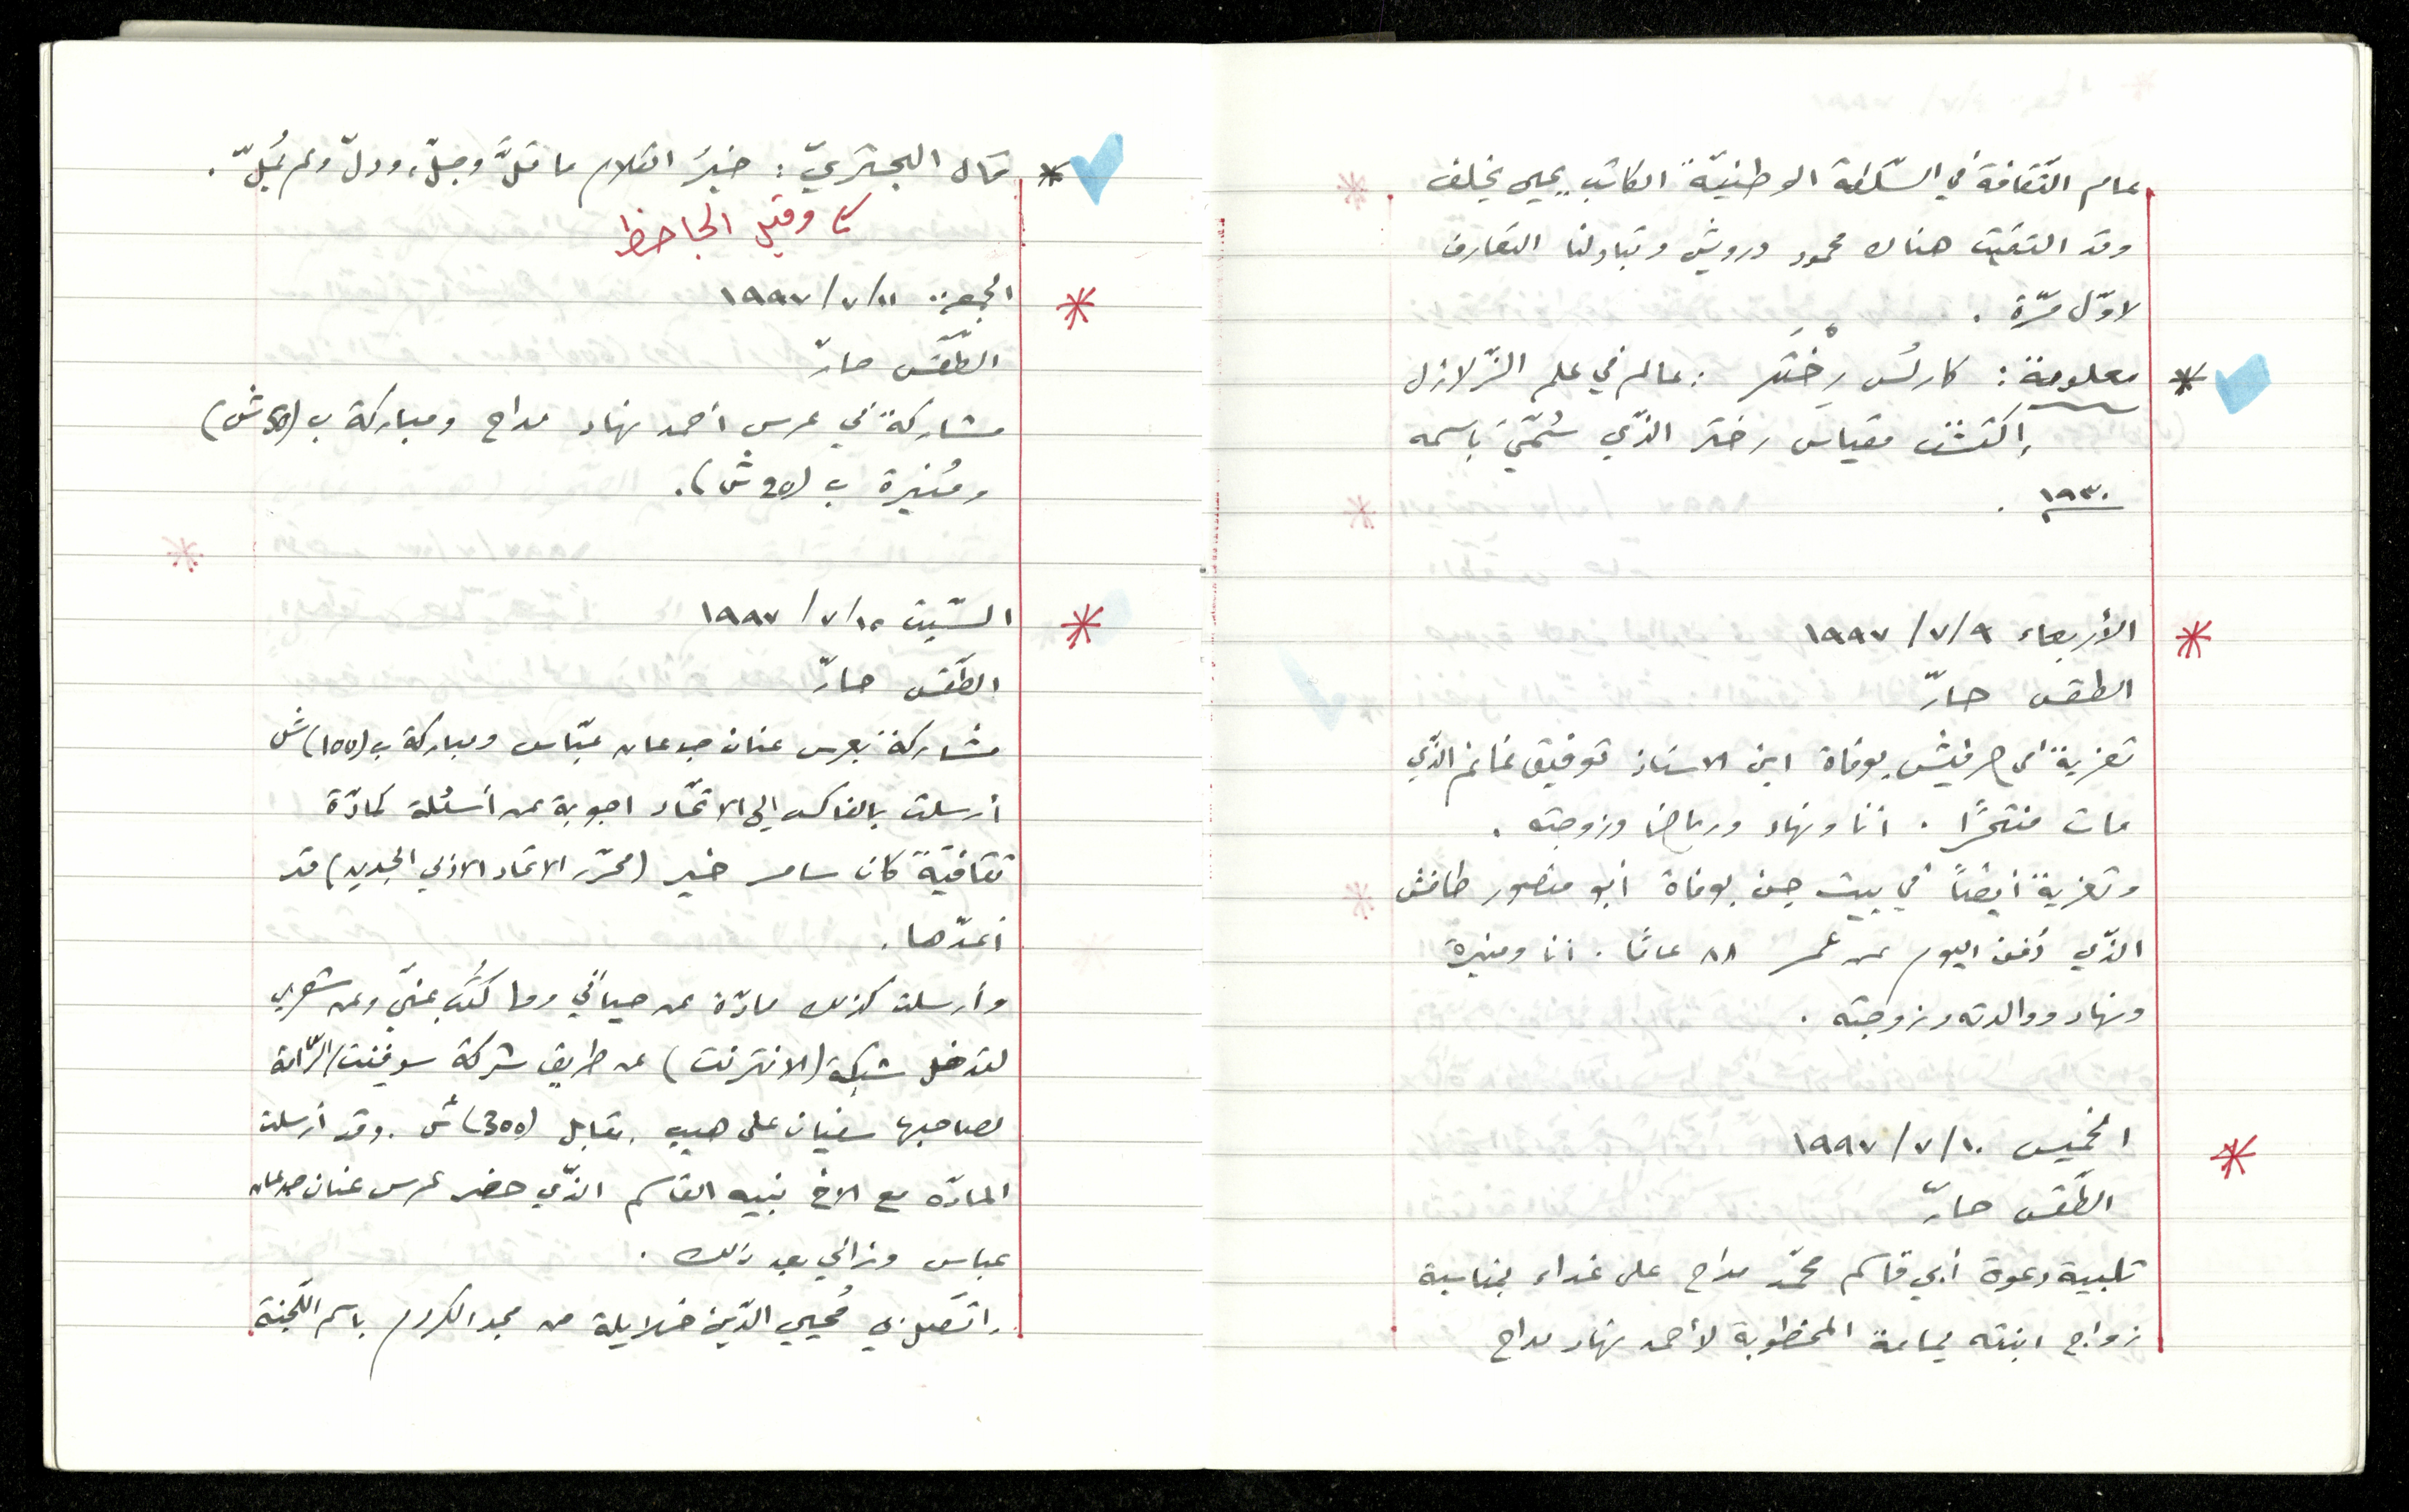 عام الثّقافة في السّلطة الوطنيّة الكاتب يحيى يخلف
وقد التقيت هناك محمود درويش وتبادلنا التعارف
لاوّل مرّة .
* معلومة : كارلُس رِخْتَر : عالم في علم الزّلازل
إكتشف مقياس رختر الذّي سُمّيَ باسمه
١٩٣٠ .
* الأربعاء ٩/٧/١٩٩٧
الطقس حارّ
تعزية في حرفيش بوفاة ابن الاستاذ توفيق غانم الذّي
مات منتحرًا . أنا ونهاد ورياض وزوجته .
وتعزية أيضًا في بيت جن بوفاة أبو منصور طافش
الذّي دُفن اليوم عن عمر ٨٨ عامًا . أنا ومنيرة
ونهاد ووالدته وزوجته .
* الخميس ١٠/٧/١٩٩٧
الطّقس حارّ
تلبية دعوة أبي قاسم محمّد مداح على غداء بمناسبة
زواج ابنته يمامة المخطوبة لأحمد نهاد مداح
* قال البحتريّ : خيرُ الكلام ما قلَّ وجلّ، ودلّ ولم يُملّ .
وقيل الجاحظ
* الجمعة ١١/٧/١٩٩٧
الطّقس حارّ
مشاركة في عرس أحمد نهاد مداح ومباركة ب (50 ش)
ومُنيرة ب (20 ش).
* السّبت ١٢/٧/١٩٩٧
الطّقس حارّ
مشاركة بعرس عنان جدعان عبّاس ومباركة ب (100) ش
أرسلت بالفاكس إلى الاتّحاد اجوبة عن أسئلة كمادّة
ثقافيّة كان سامر خير (محرّر الاتحاد الادبي الجديد) قد
أعدّها .
وأرسلت كذلك مادّة عن حياتي وما كُتب عنّي وعن شعري
لتدخل شبكة (الانترنت) عن طريق شركة سوفنت/الرّامة
لصاحبها سفيان علي هيب مقابل (300) ش . وقد أرسلت
المادّة مع الاخ نبيه القاسم الذّي حضر عرس عنان جدعان
عباس وزارني بعد ذلك .
إتّصل بي مُحيي الدّين خلايلة من مجد الكروم باسم اللّجنة